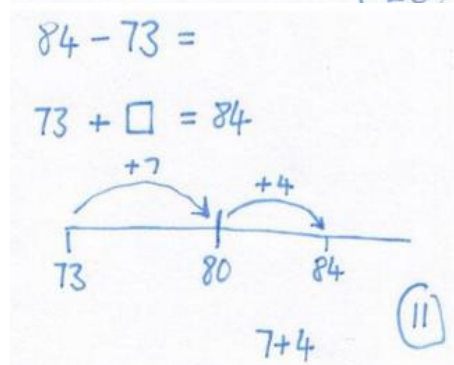 84 - 73 =
73 + □ = 84
+7 +4
73 80 84
7+4
11